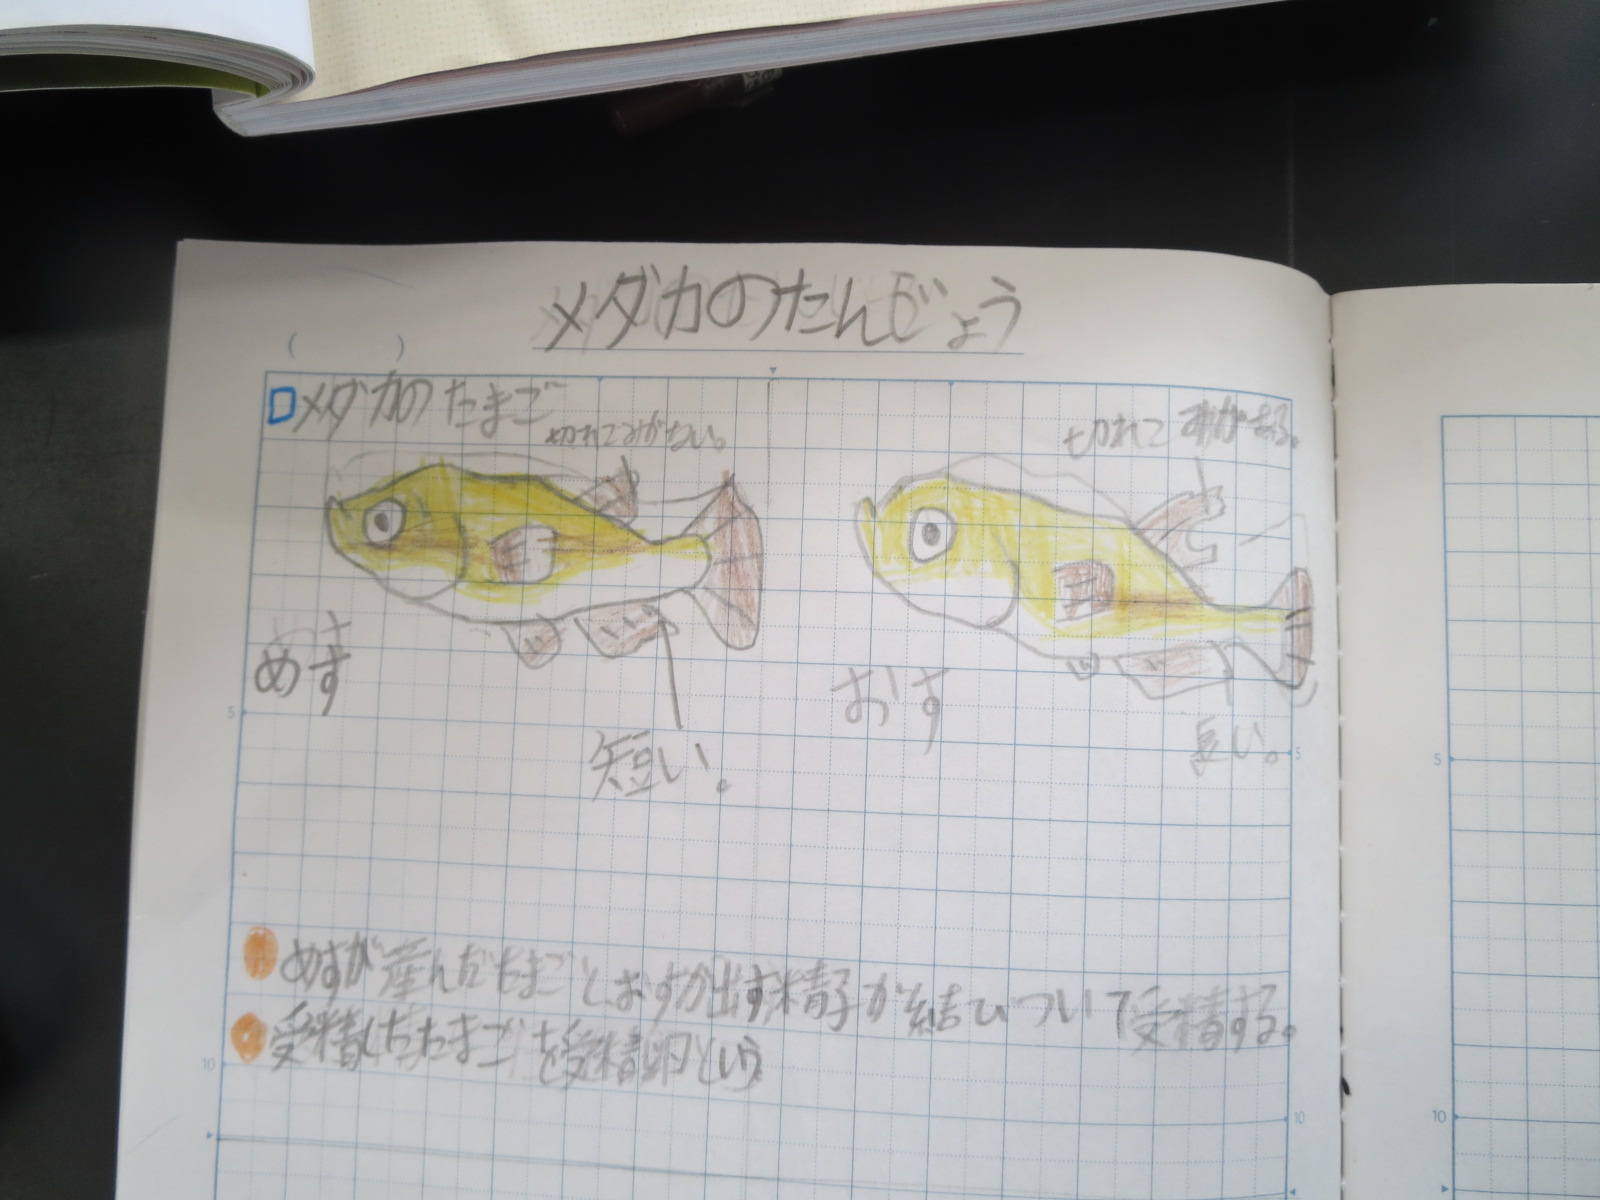 メダカのたんじょう
(　　　)
メダカのたまご
切れこみがない。
切れこみがある。
めす
おす
短い。
長い。
5
5
5
めすが産んだたまごとおすが出す精子が結びついて受精する。
受精したたまごを受精卵という
10
10
10